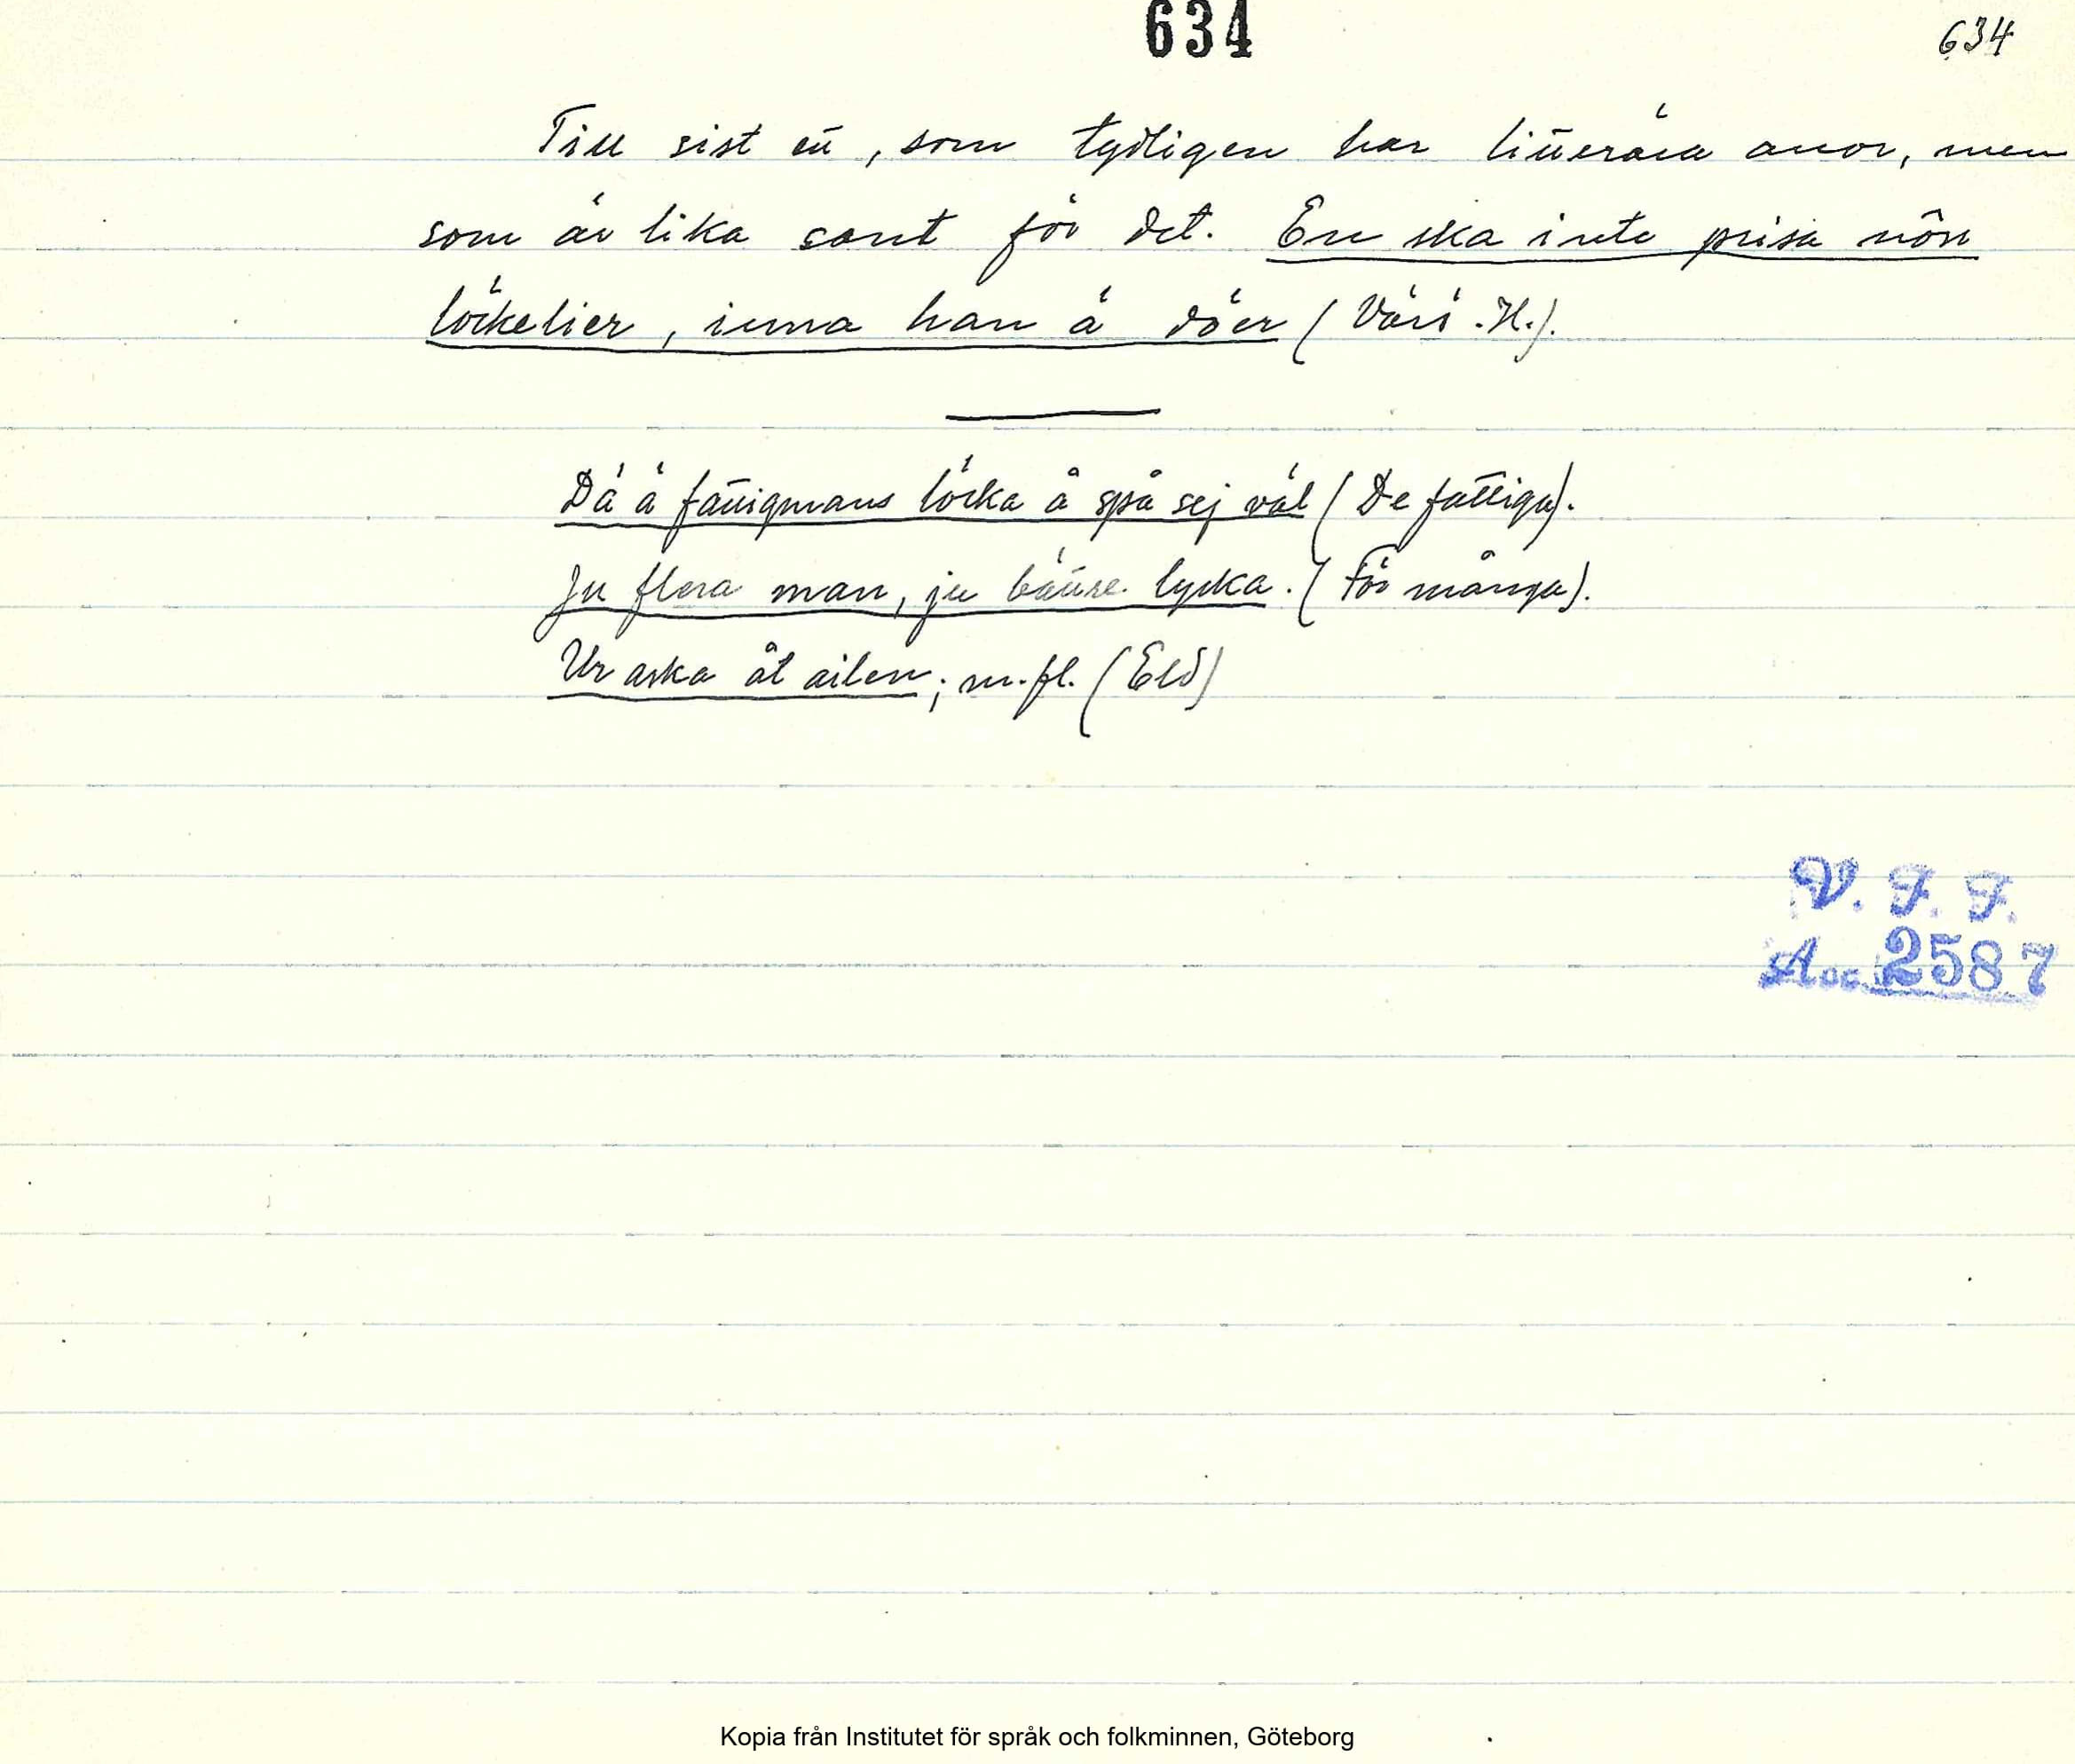 634
634
Till sist ett, som tydligen har litterära anor, men
som är lika sant för det. En ska inte prisa nôn
löckelier, inna han ä döer (Värö. H.).
Dä ä fattigmans löcka å spå sej väl (De fattiga).
Ju flera man, ju bättre lycka. (För många).
Ur aska åt ailen; m.fl. (Eld)
V. F. F.
Acc. 2587
Kopia från Institutet för språk och folkminnen, Göteborg